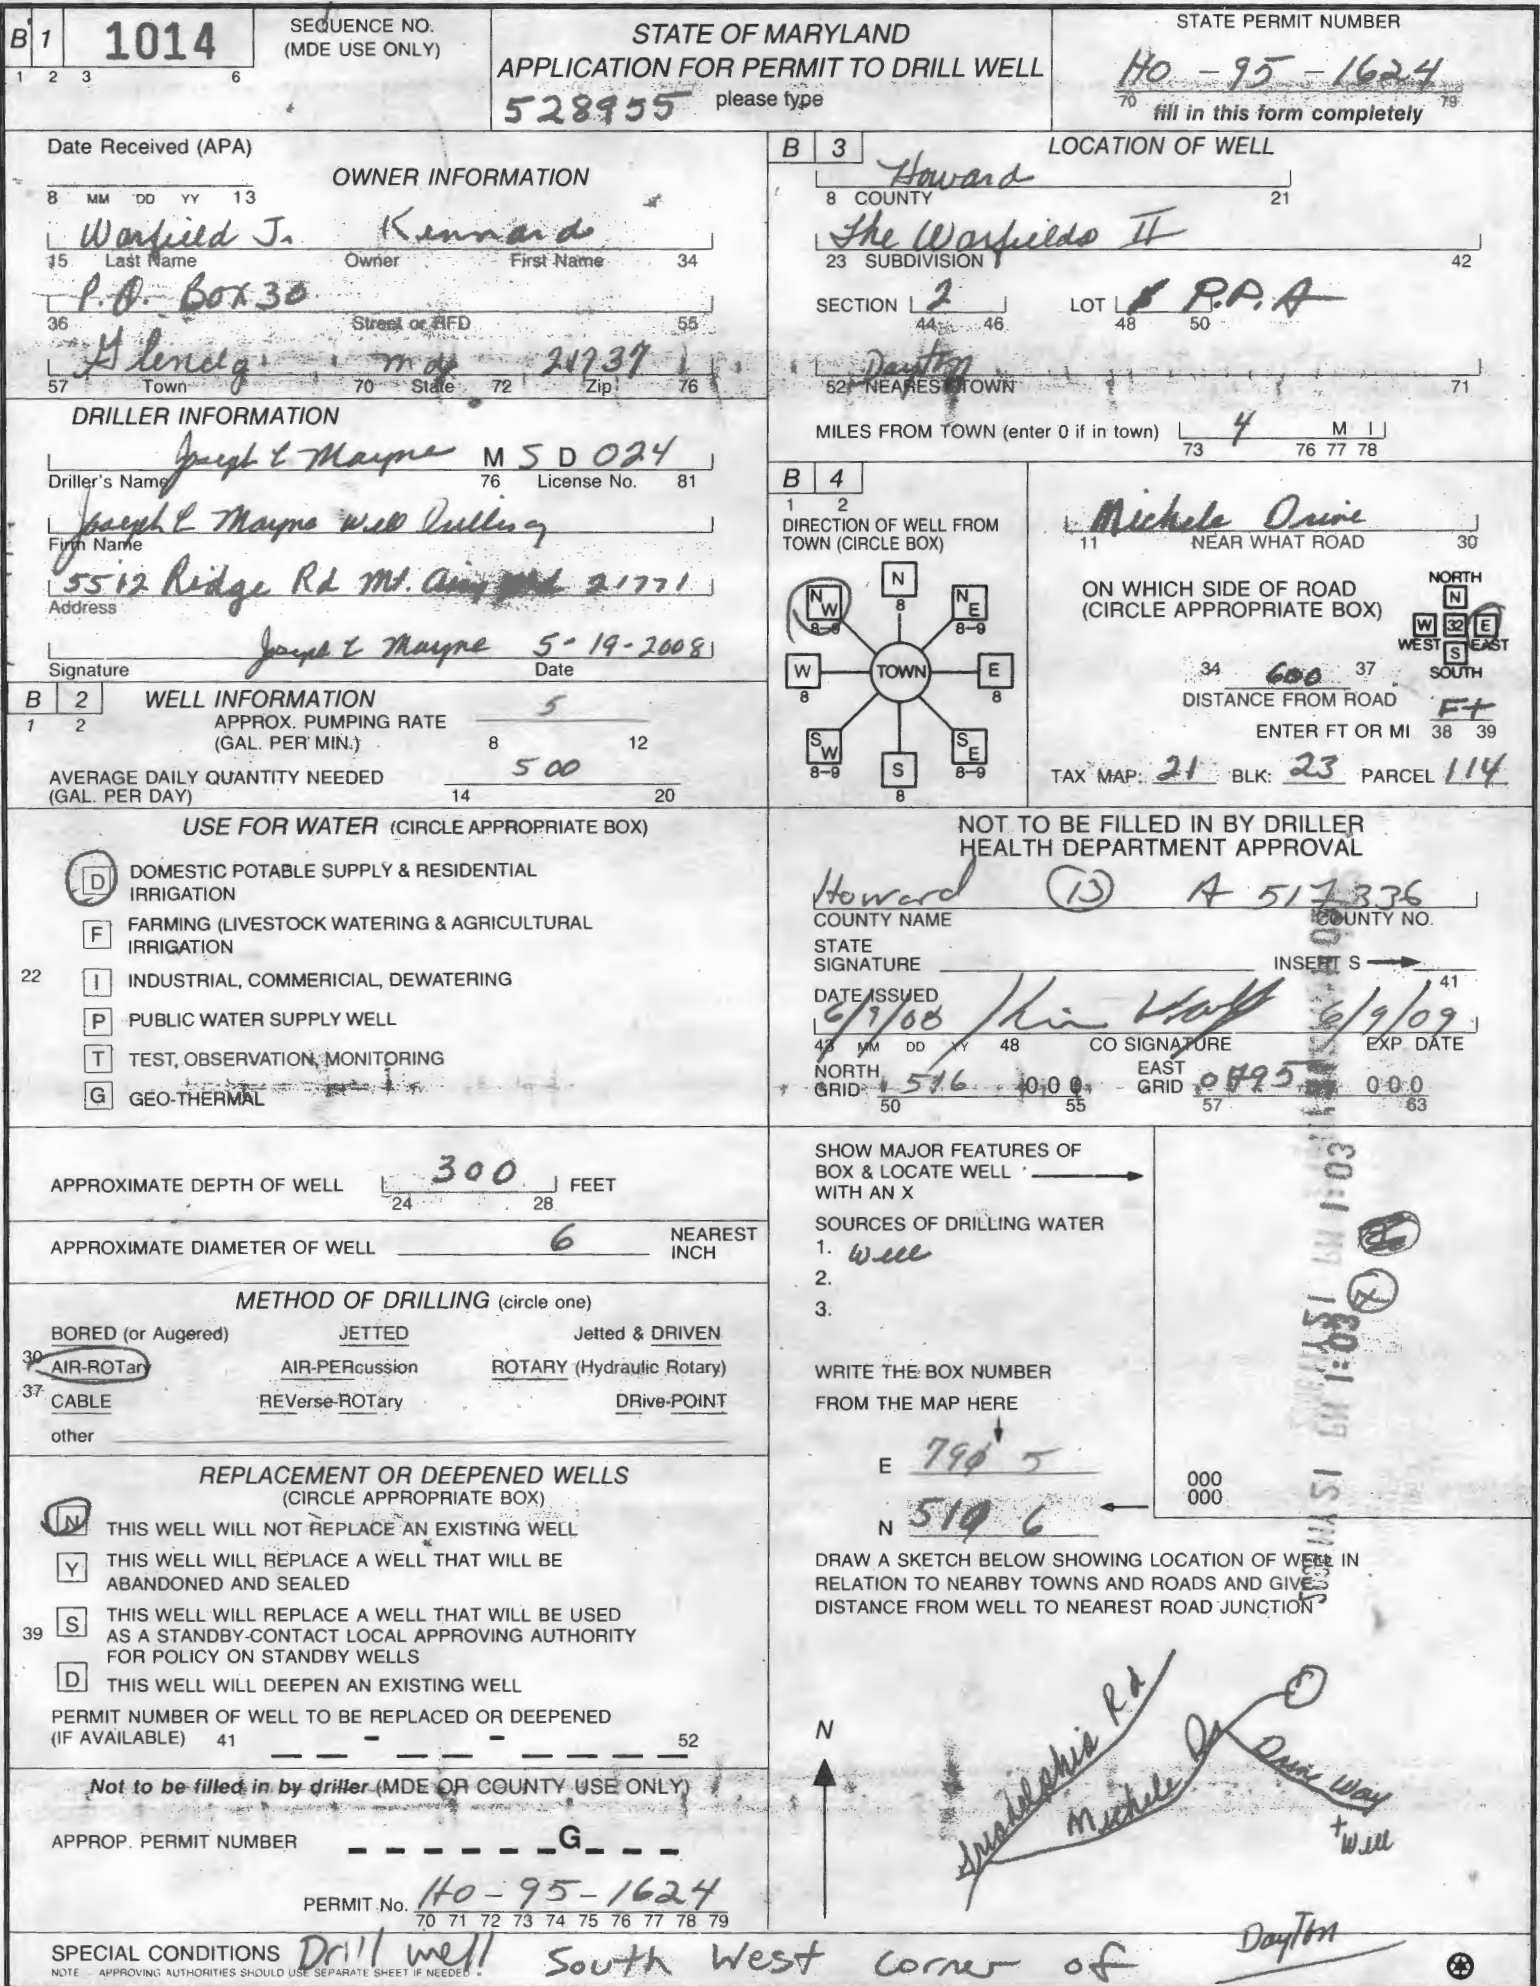 B 1 1014 SEQUENCE NO. (MDE USE ONLY)
1 2 3 6
STATE OF MARYLAND
APPLICATION FOR PERMIT TO DRILL WELL
528955 please type
STATE PERMIT NUMBER
HO - 95 - 1624
70 79
fill in this form completely
Date Received (APA)
8 MM DD YY 13
OWNER INFORMATION
Warfield Jr. Kennard
15 Last Name Owner First Name 34
P.O. Box 30
36 Street or RFD 55
Glenelg md 21737
57 Town 70 State 72 Zip 76
DRILLER INFORMATION
Joseph L Mayne M S D 024
Driller's Name 76 License No. 81
Joseph L Mayne Well Drilling
Firm Name
5512 Ridge Rd Mt. Airy Md 21771
Address
Joseph L Mayne 5-19-2008
Signature Date
B 2 WELL INFORMATION
1 2
APPROX. PUMPING RATE 5
(GAL. PER MIN.) 8 12
AVERAGE DAILY QUANTITY NEEDED 500
(GAL. PER DAY) 14 20
USE FOR WATER (CIRCLE APPROPRIATE BOX)
D DOMESTIC POTABLE SUPPLY & RESIDENTIAL
IRRIGATION
F FARMING (LIVESTOCK WATERING & AGRICULTURAL
IRRIGATION
22 I INDUSTRIAL, COMMERICIAL, DEWATERING
P PUBLIC WATER SUPPLY WELL
T TEST, OBSERVATION, MONITORING
G GEO-THERMAL
APPROXIMATE DEPTH OF WELL 300 FEET
24 28
APPROXIMATE DIAMETER OF WELL 6 NEAREST
INCH
METHOD OF DRILLING (circle one)
BORED (or Augered) JETTED Jetted & DRIVEN
30 AIR-ROTary AIR-PERcussion ROTARY (Hydraulic Rotary)
37 CABLE REVerse-ROTary DRive-POINT
other
REPLACEMENT OR DEEPENED WELLS
(CIRCLE APPROPRIATE BOX)
N THIS WELL WILL NOT REPLACE AN EXISTING WELL
Y THIS WELL WILL REPLACE A WELL THAT WILL BE
ABANDONED AND SEALED
39 S THIS WELL WILL REPLACE A WELL THAT WILL BE USED
AS A STANDBY-CONTACT LOCAL APPROVING AUTHORITY
FOR POLICY ON STANDBY WELLS
D THIS WELL WILL DEEPEN AN EXISTING WELL
PERMIT NUMBER OF WELL TO BE REPLACED OR DEEPENED
(IF AVAILABLE) 41 - - 52
Not to be filled in by driller (MDE OR COUNTY USE ONLY)
APPROP. PERMIT NUMBER G
PERMIT No. HO - 95 - 1624
70 71 72 73 74 75 76 77 78 79
B 3 LOCATION OF WELL
Howard
8 COUNTY 21
The Warfields II
23 SUBDIVISION 42
SECTION 2 LOT P.P.A
44 46 48 50
Dayton
52 NEAREST TOWN 71
MILES FROM TOWN (enter 0 if in town) 4 M I
73 76 77 78
B 4
1 2
DIRECTION OF WELL FROM
TOWN (CIRCLE BOX)
N 8
NW 8-9
NE 8-9
W 8
TOWN
E 8
SW 8-9
S 8
SE 8-9
Michele Drive
11 NEAR WHAT ROAD 30
ON WHICH SIDE OF ROAD
(CIRCLE APPROPRIATE BOX)
NORTH
N
W 32 E
WEST EAST
S
SOUTH
34 600 37
DISTANCE FROM ROAD
ENTER FT OR MI Ft
38 39
TAX MAP: 21 BLK: 23 PARCEL 114
NOT TO BE FILLED IN BY DRILLER
HEALTH DEPARTMENT APPROVAL
Howard 13 A 517336
COUNTY NAME COUNTY NO.
STATE
SIGNATURE INSERT S
41
DATE ISSUED
6/9/08 6/9/09
43 MM DD YY 48 CO SIGNATURE EXP. DATE
NORTH GRID 516 000 EAST GRID 0795 000
50 55 57 63
SHOW MAJOR FEATURES OF
BOX & LOCATE WELL
WITH AN X
SOURCES OF DRILLING WATER
1. Well
2.
3.
WRITE THE BOX NUMBER
FROM THE MAP HERE
E 790 5
N 510 6
000
000
X
1:03
DRAW A SKETCH BELOW SHOWING LOCATION OF WELL IN
RELATION TO NEARBY TOWNS AND ROADS AND GIVE
DISTANCE FROM WELL TO NEAREST ROAD JUNCTION
N
Rd
Michele Dr
Drive Way
+ Well
Dayton
SPECIAL CONDITIONS Drill well South West corner of
NOTE APPROVING AUTHORITIES SHOULD USE SEPARATE SHEET IF NEEDED